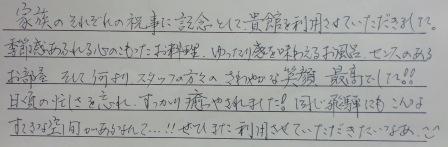 家族のそれぞれの祝事に記念として貴館を利用させていただきまして。
季節感あふれる心のこもったお料理、ゆったり感を味わえるお風呂、センスのある
お部屋 そして何より スタッフの方々の さわやかな笑顔 最高でした!!
日頃の忙しさを忘れ、すっかり癒やされました! 同じ飛騨にも こんな
すてきな空間があるなんて…!! ぜひまた利用させていただきたいなあ、と